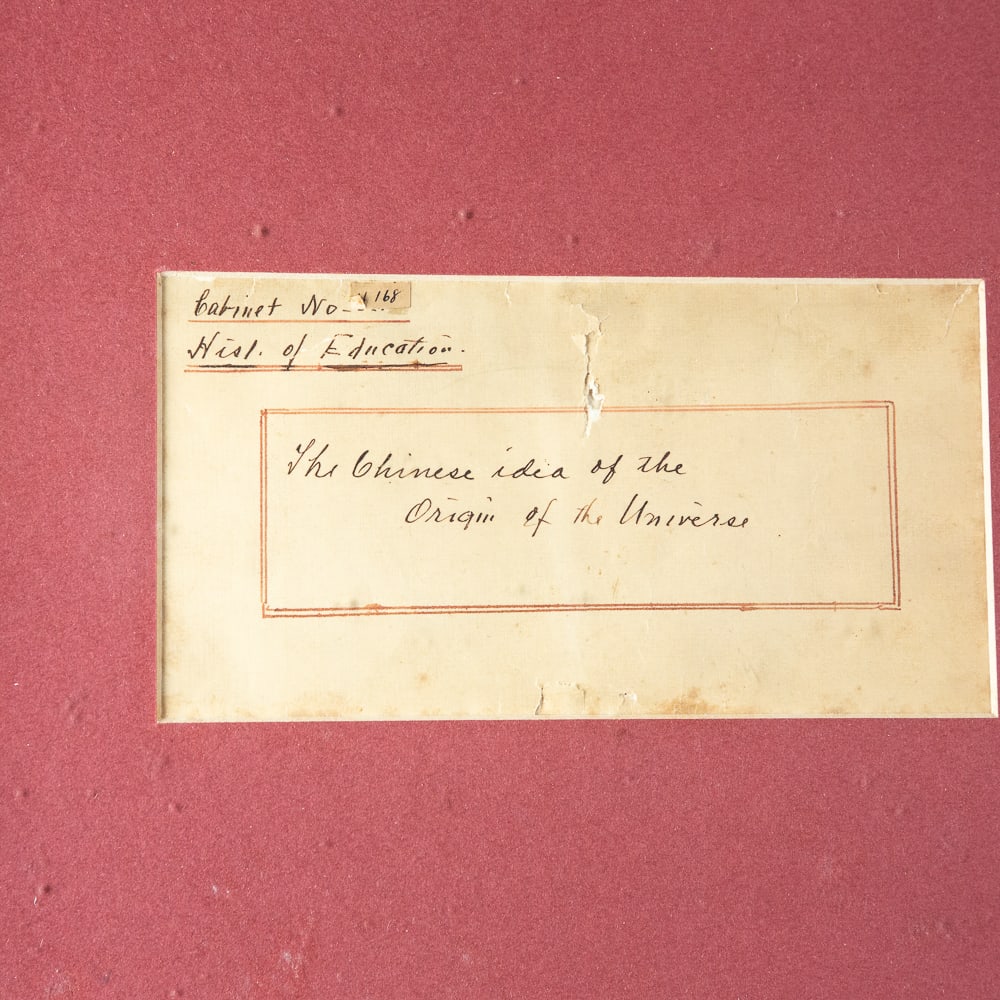 Cabinet No 168
Hist. of Education.
The Chinese idea of the
Origin of the Universe